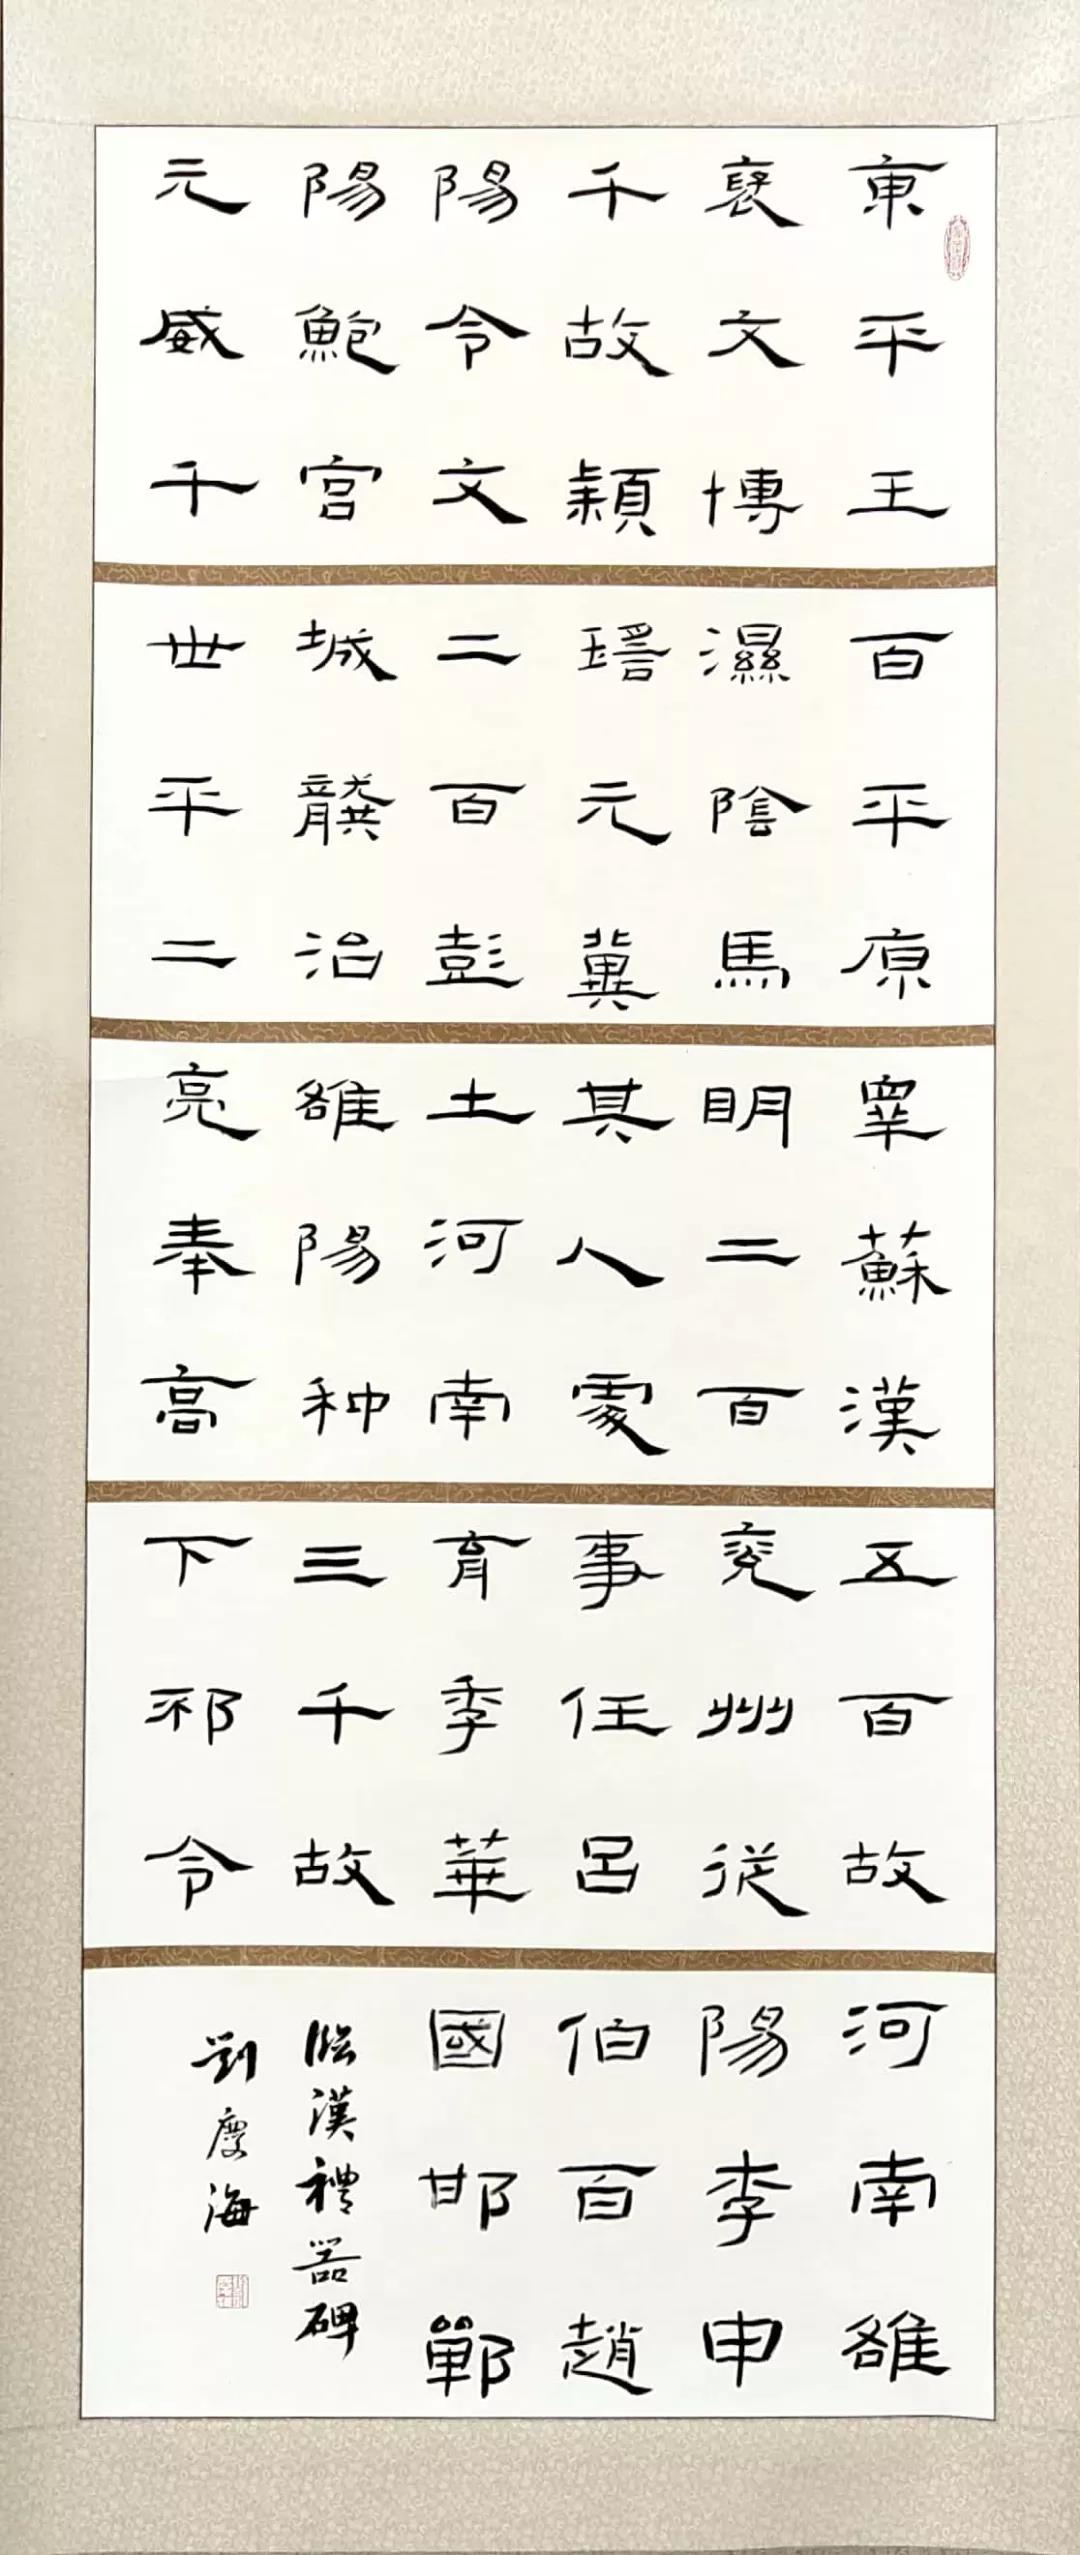 東平王
襃文博
千故穎
陽令文
陽鮑宮
元威千
百平原
濕陰馬
瑤元冀
二百彭
城龔治
世平二
睪蘇漢
明二百
其人處
土河南
雒陽种
亮奉高
五百故
兗州從
事任呂
育季華
三千故
下邳令
河南雒
陽李申
伯百趙
國邯鄲
臨漢禮器碑
劉慶海